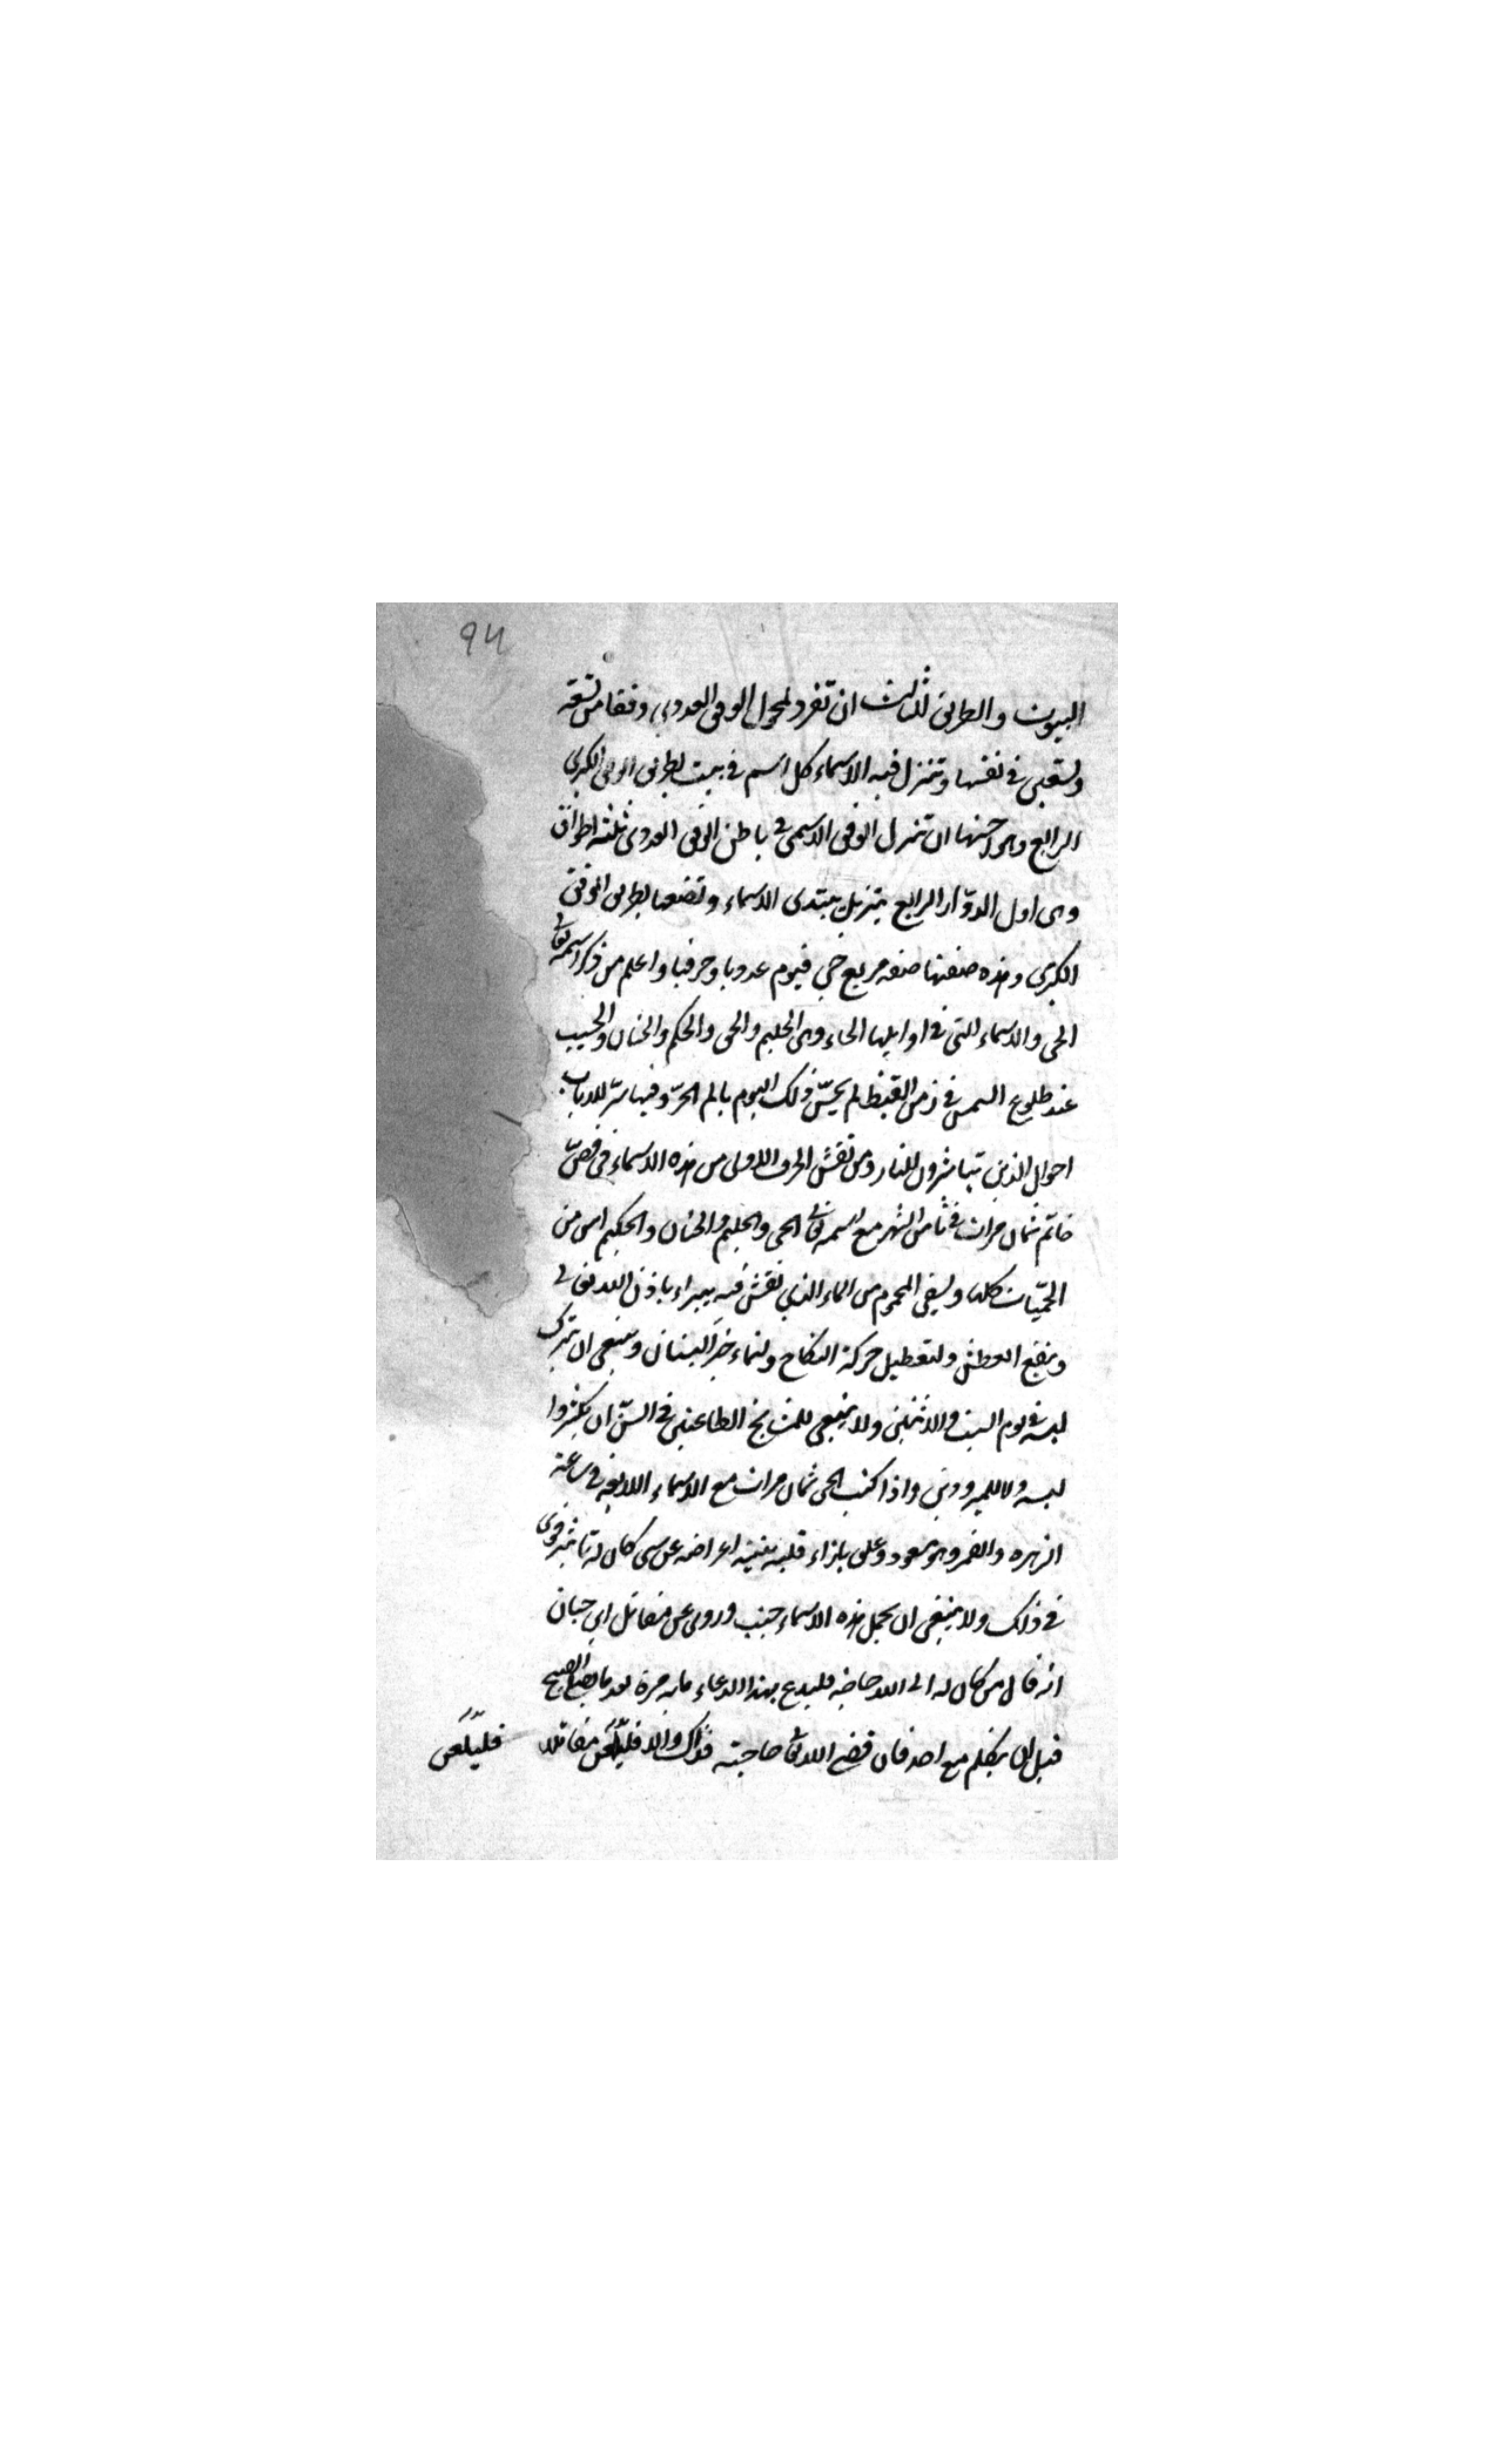 94
البيوت والطريق الثالث ان تفرد لمحول الوفق العددى وفقا من تسعة
وتسعين فى نفسها وتنزل فيه الاسماء كل اسم فى بيت بطريق الوفق الكبرى
الرابع وهو احسنها ان تنزل الوفق الاسمى فى باطن الوفق العددى ثلثة اطواق
وهى اول الدوّار الرابع بتنزيل مبتدى الاسماء وتضعها بطريق الوفق
الكبرى وهذه صفتها صفه مربع حى قيوم عدديا وحرفيا واعلم من ذكر اسمه تعالى
الحى والاسماء التى فى اوايلها الحاء وهى الحليم والحى والحكم والحنان والحسيب
عند طلوع الشمس فى زمن القيظ لم يحسّ ذلك اليوم بالم الحرّ وفيها سرّ للارباب
احوال الذين يباشرون للنار ومن نقش الحرف الاولى من هذه الاسماء فى فصّ
خاتم ثمان مرات فى ثامن الشهر مع اسمه تعالى الحى والحليم والحنان والحكيم امن من
الحمّيات كلها ويسقى المحموم من الماء الذى نقش فيه يبراء باذن الله تعالى
وينفع العطش ولتعطيل حركة النكاح ولنماء البستان وينبغى ان يترك
لبسه فى يوم السبت والاثنين ولا ينبغى للمشايخ الطاعنين فى السنّ ان يكثروا
لبسه ولا للمبرودين واذا كتب الحى ثمان مرات مع الاسماء اللايقه فى ساعة
الزهره والقمر وهو مسعود وعلى بازاء قلبه اعراضه عن شى كان له تاثير قوى
فى ذلك ولا ينبغى ان يحمل هذه الاسماء جنب وروى عن مقاتل ابن حبان
انه قال من كان له الى الله حاجة فليدع بهذا الدعاء مايه مرة بعد ما يصلى الصبح
قبل ان يتكلم مع احد فان قضى الله تعالى حاجته فذاك والا فليلعن مقاتلا
فليلعن